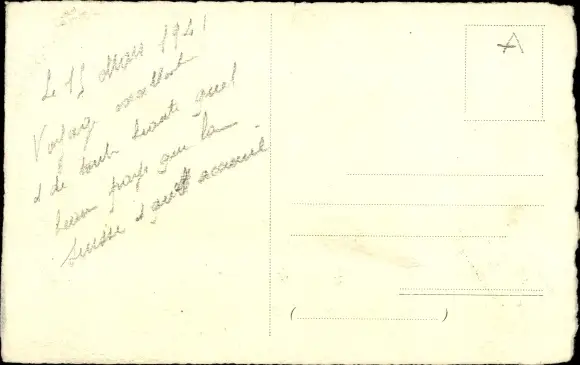 Le 15 Mars 1941
Voyage excellent
et de toute beauté quel
beau pays que la
Suisse et quel accueil
A